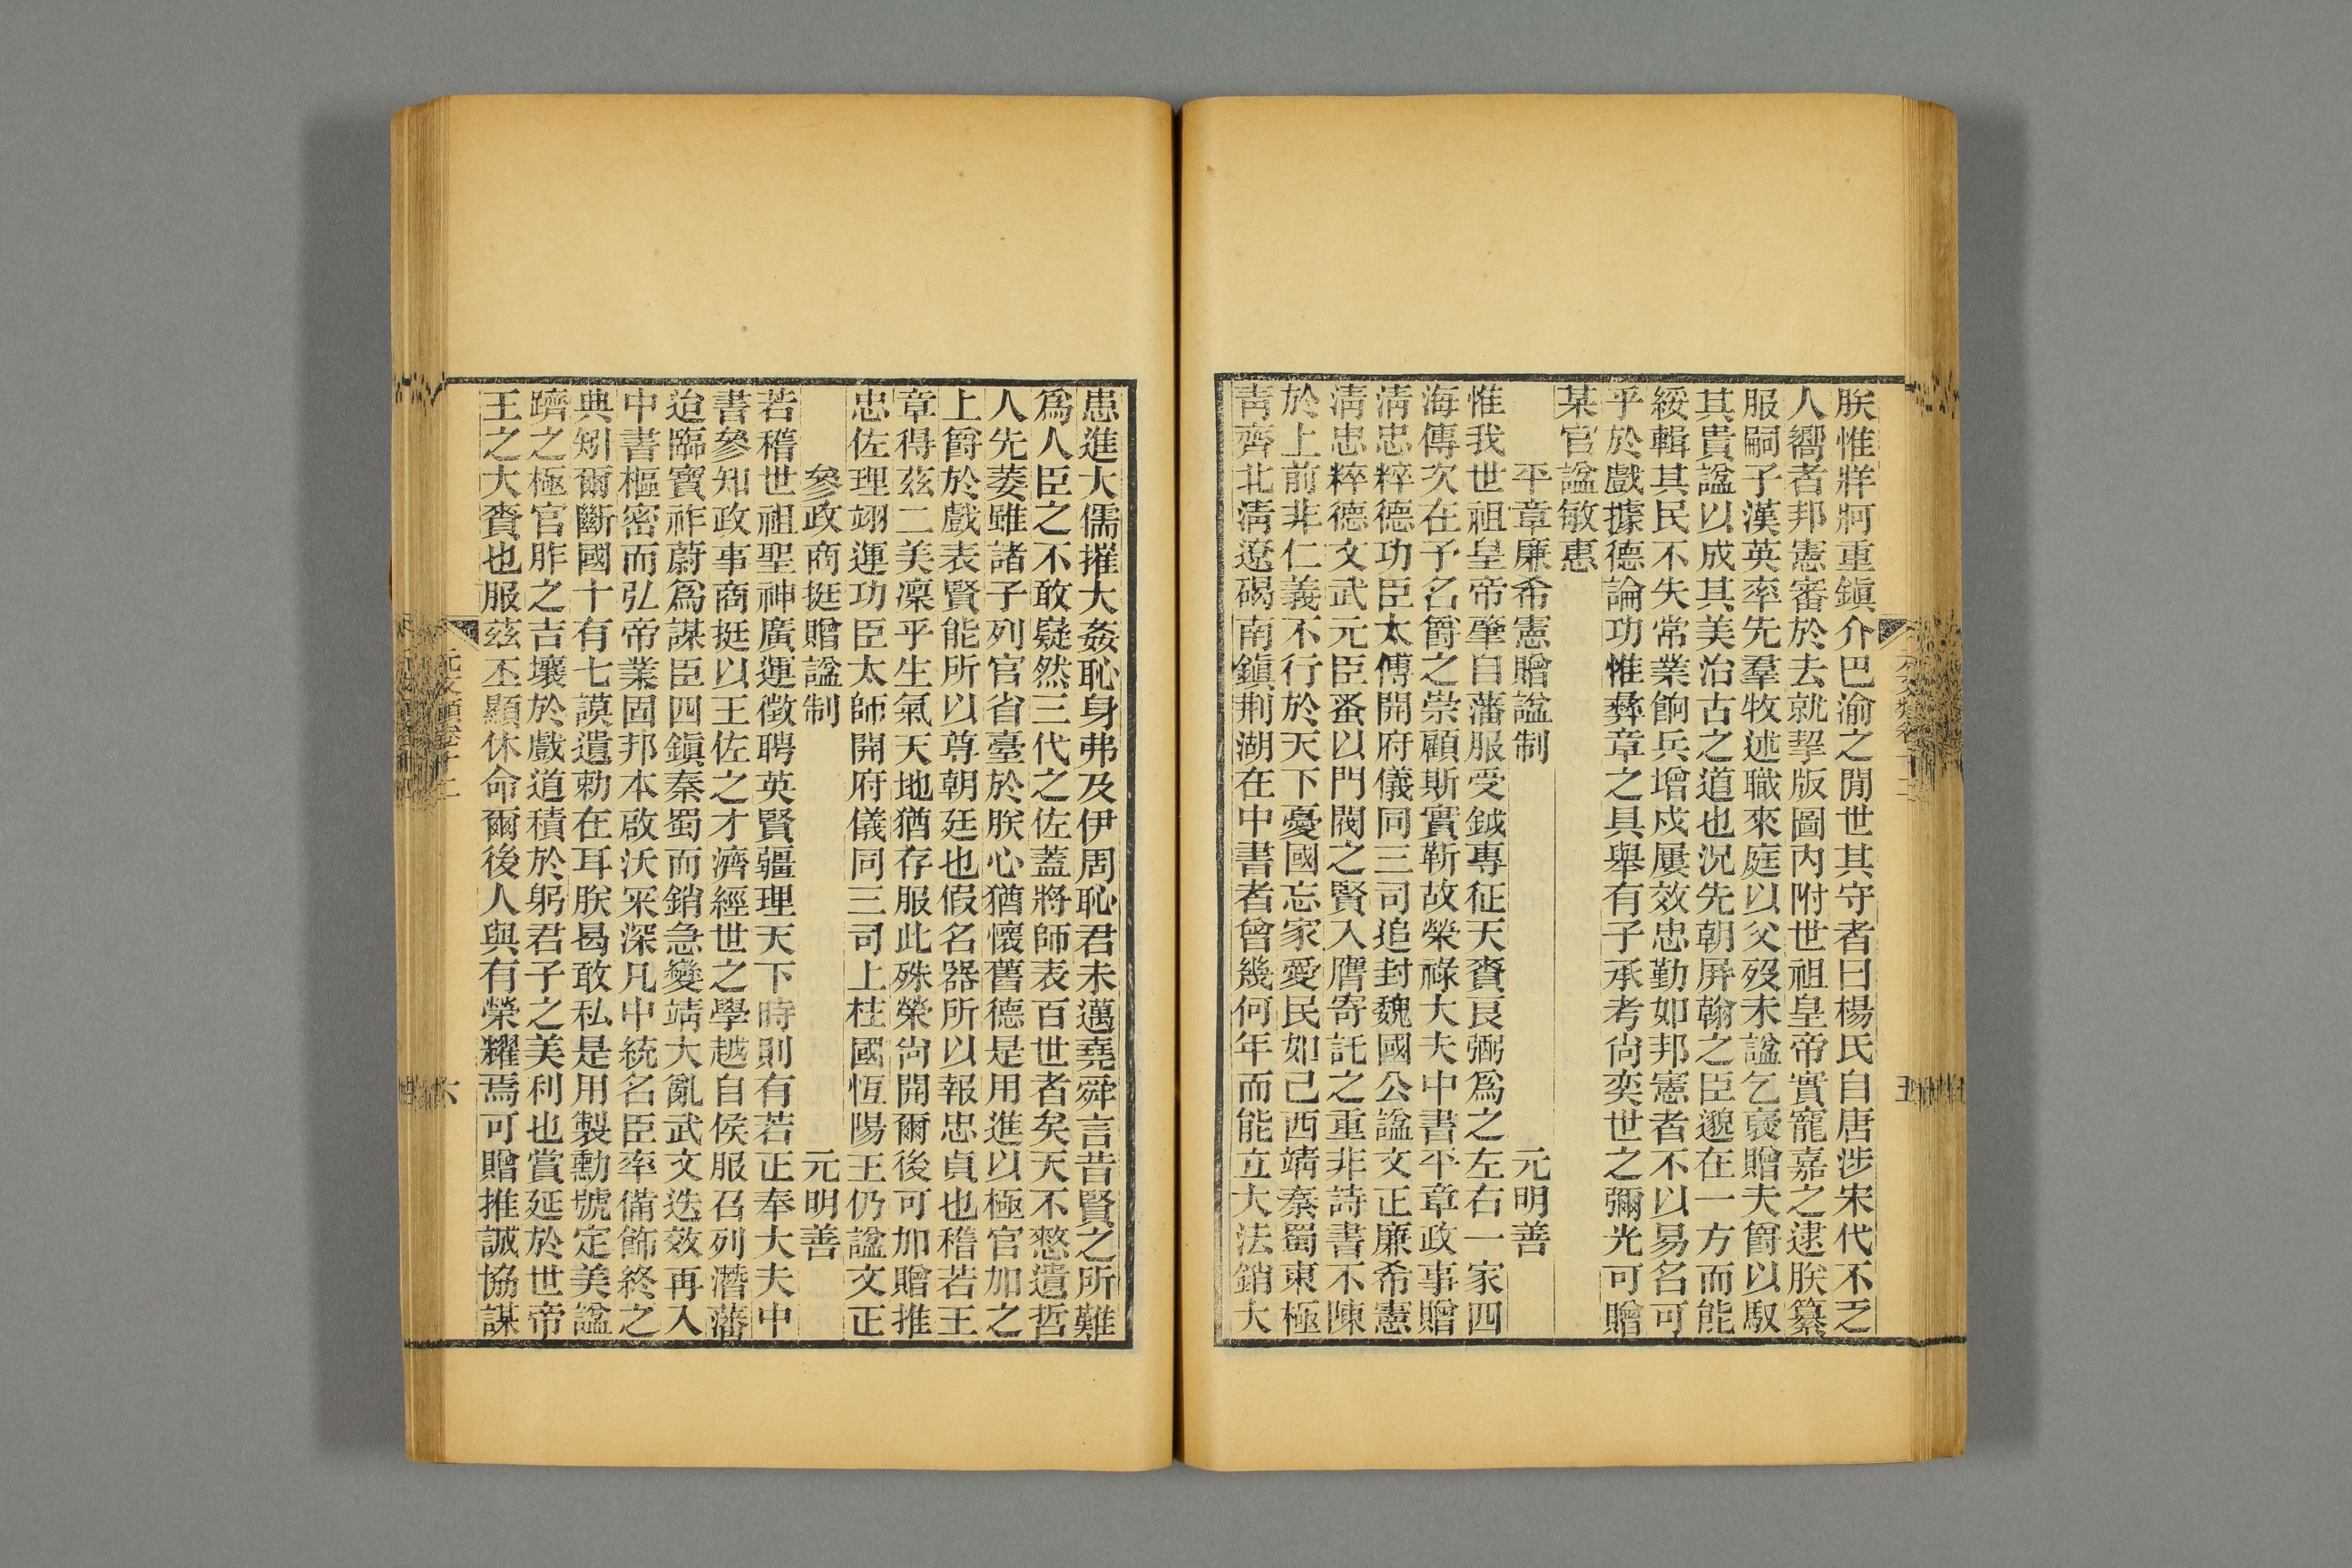 朕惟牂牁重鎭介巴渝之閒世其守者曰楊氏自唐涉宋代不乏
人嚮者邦憲審於去就挈版圖內附世祖皇帝實寵嘉之逮朕纂
服嗣子漢英率先羣牧述職來庭以父歿未諡乞襃贈夫爵以馭
其貴諡以成其美治古之道也況先朝屏翰之臣邈在一方而能
綏輯其民不失常業餉兵增戍屢效忠勤如邦憲者不以易名可
乎於戲據德論功惟彝章之具舉有子承考尙奕世之彌光可贈
某官諡敏惠
平章廉希憲贈諡制　元明善
惟我世祖皇帝肇自藩服受鉞專征天賚良弼爲之左右一家四
海傳次在予名爵之崇顧斯實靳故榮祿大夫中書平章政事贈
淸忠粹德功臣太傅開府儀同三司追封魏國公諡文正廉希憲
淸忠粹德文武元臣蚤以門閥之賢入膺寄託之重非詩書不陳
於上前非仁義不行於天下憂國忘家愛民如己西靖秦蜀東極
靑齊北淸遼碣南鎭荆湖在中書者曾幾何年而能立大法銷大
患進大儒摧大姦恥身弗及伊周恥君未邁堯舜言昔賢之所難
爲人臣之不敢嶷然三代之佐蓋將師表百世者矣天不憖遺哲
人先萎雖諸子列官省臺於朕心猶懷舊德是用進以極官加之
上爵於戲表賢能所以尊朝廷也假名器所以報忠貞也稽若王
章得茲二美凜乎生氣天地猶存服此殊榮尙開爾後可加贈推
忠佐理翊運功臣太師開府儀同三司上柱國恆陽王仍諡文正
參政商挺贈諡制　元明善
若稽世祖聖神廣運徵聘英賢疆理天下時則有若正奉大夫中
書參知政事商挺以王佐之才濟經世之學越自侯服召列潛藩
迨臨寶祚蔚爲謀臣四鎭秦蜀而銷急變靖大亂武文迭效再入
中書樞密而弘帝業固邦本啟沃寀深凡中統名臣率備飾終之
典矧爾斷國十有七謨遺勅在耳朕曷敢私是用製勳號定美諡
躋之極官胙之吉壤於戲道積於躬君子之美利也賞延於世帝
王之大賚也服茲丕顯休命爾後人與有榮耀焉可贈推誠協謀
元文類卷十二
六